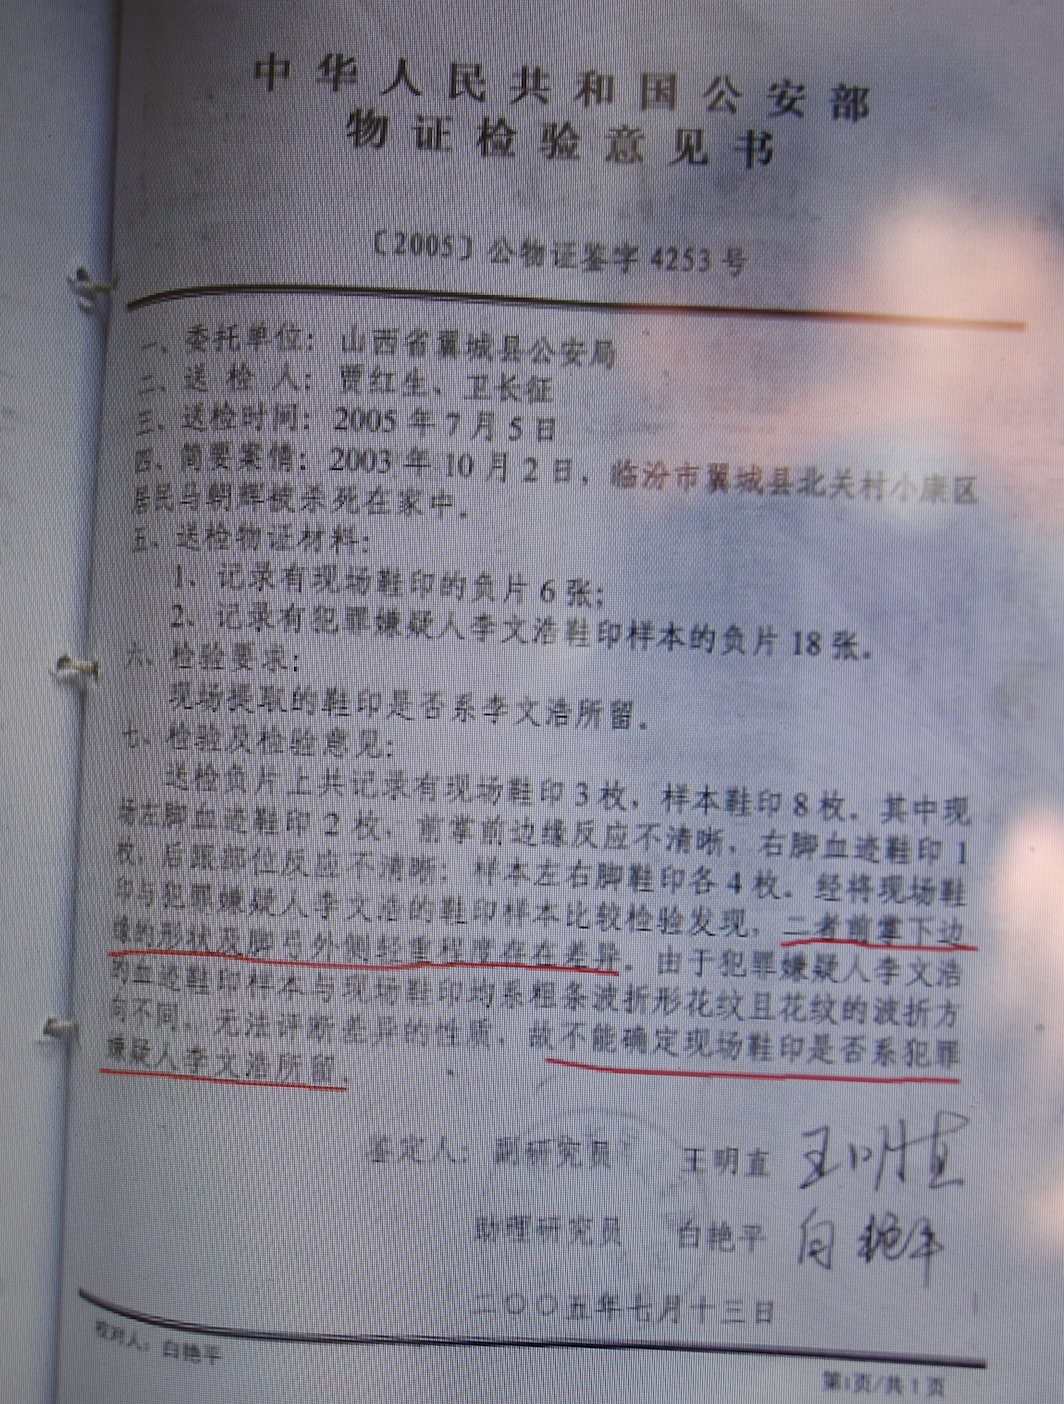 中华人民共和国公安部
物证检验意见书
〔2005〕公物证鉴字 4253 号
一、委托单位：山西省翼城县公安局
二、送 检 人：贾红生、卫长征
三、送检时间：2005 年 7 月 5 日
四、简要案情：2003 年 10 月 2 日，临汾市翼城县北关村小康区
居民马朝辉被杀死在家中。
五、送检物证材料：
1、记录有现场鞋印的负片 6 张；
2、记录有犯罪嫌疑人李文浩鞋印样本的负片 18 张。
六、检验要求：
现场提取的鞋印是否系李文浩所留。
七、检验及检验意见：
送检负片上共记录有现场鞋印 3 枚，样本鞋印 8 枚。其中现
场左脚血迹鞋印 2 枚，前掌前边缘反应不清晰，右脚血迹鞋印 1
枚，后跟部位反应不清晰；样本左右脚鞋印各 4 枚。经将现场鞋
印与犯罪嫌疑人李文浩的鞋印样本比较检验发现，二者前掌下边
缘的形状及脚弓外侧轻重程度存在差异。由于犯罪嫌疑人李文浩
的血迹鞋印样本与现场鞋印均系粗条波折形花纹且花纹的波折方
向不同，无法评断差异的性质，故不能确定现场鞋印是否系犯罪
嫌疑人李文浩所留。
鉴定人：副研究员 王明直 王明直
助理研究员 白艳平 白艳平
二〇〇五年七月十三日
校对人：白艳平
第1页/共 1 页